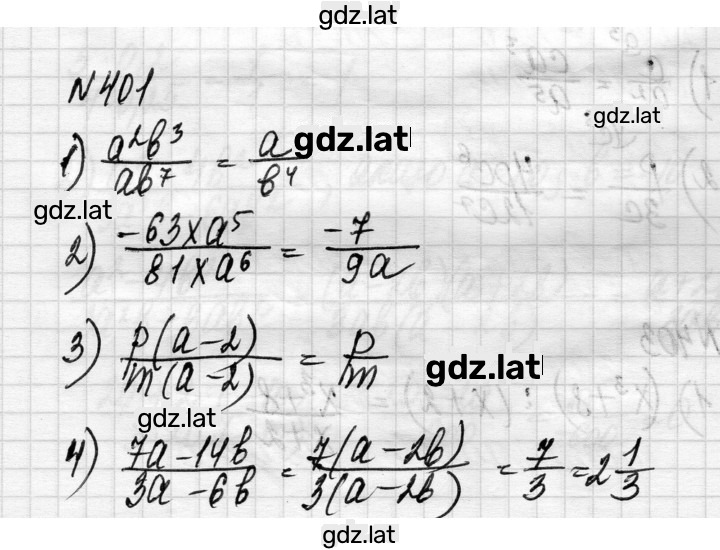 gdz.lat
N 401
gdz.lat
1) a²b³/ab⁷ = a/b⁴ gdz.lat
gdz.lat
2) -63xa⁵/81xa⁶ = -7/9a
3) p(a-2)/m(a-2) = p/m gdz.lat
gdz.lat
4) 7a-14b/3a-6b = 7(a-2b)/3(a-2b) = 7/3 = 2 1/3
gdz.lat